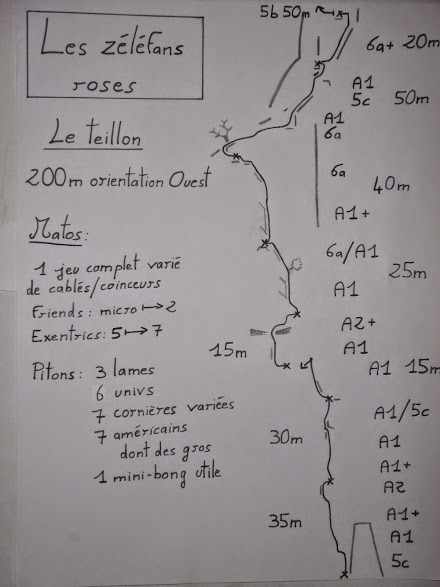 Les zéléfans
roses
Le teillon
200m orientation Ouest
Matos:
1 jeu complet varié
de cablés/coinceurs
Friends: micro ↦ 2
Exentrics: 5 ↦ 7
Pitons: 3 lames
6 univs
7 cornières variées
7 américains
dont des gros
1 mini-bong utile
5b 50m
6a+ 20m
A1
5c 50m
A1
6a
6a
40m
A1+
6a/A1
25m
A1
A2+
15m
A1
A1 15m
A1/5c
30m
A1
A1+
A2
35m
A1+
A1
5c